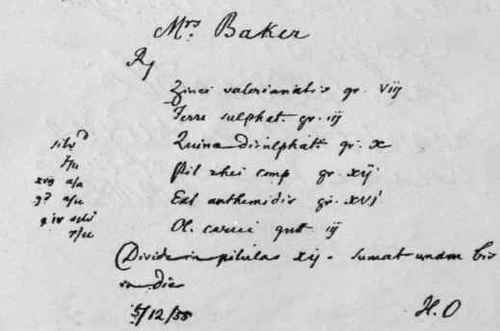 Mrs. Baker
Rx
Zinci valerianatis gr. viij
Ferri sulphat. gr. iij
Quina disulphat. gr. x
Pil rhei comp gr. xij
Ext anthemidis gr. xvj
Ol. carui gut iij
Divide in pilulas xij - sumat unam bis
in die
5/12/55 H. O